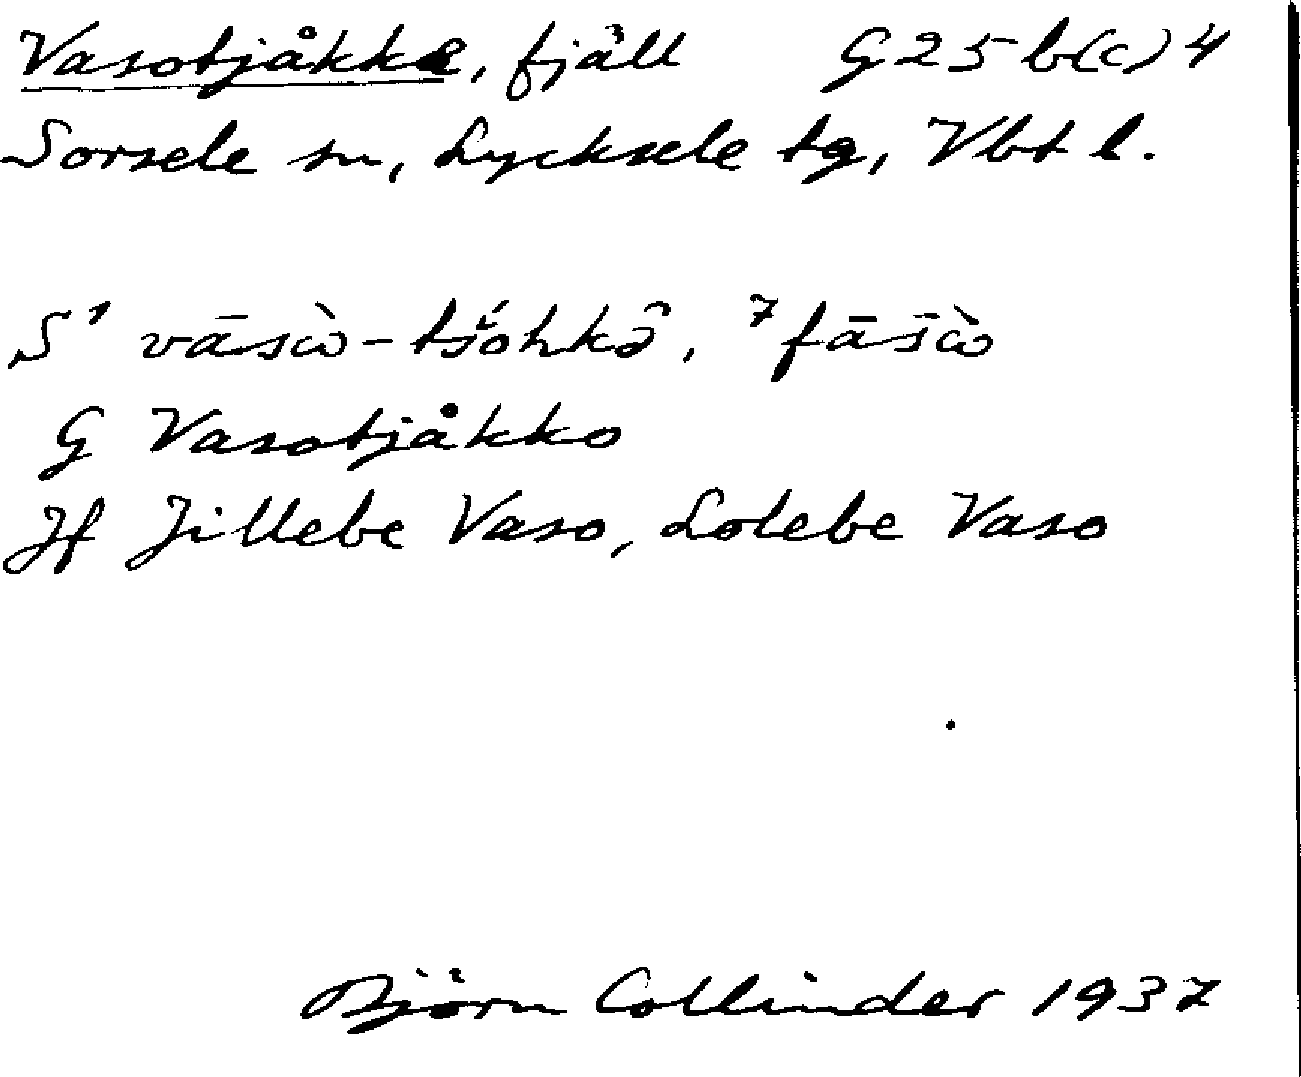 Vasotjåkke, fjäll G25b(c)4
Sorsele sn, Lycksele tg, Vbt l.
S¹ vāsὼ-tšŏ́hkɔ̂, ⁷fāsὼ
G Vasotjåkko
Jf Jillebe Vaso, Lolebe Vaso
Björn Collinder 1937